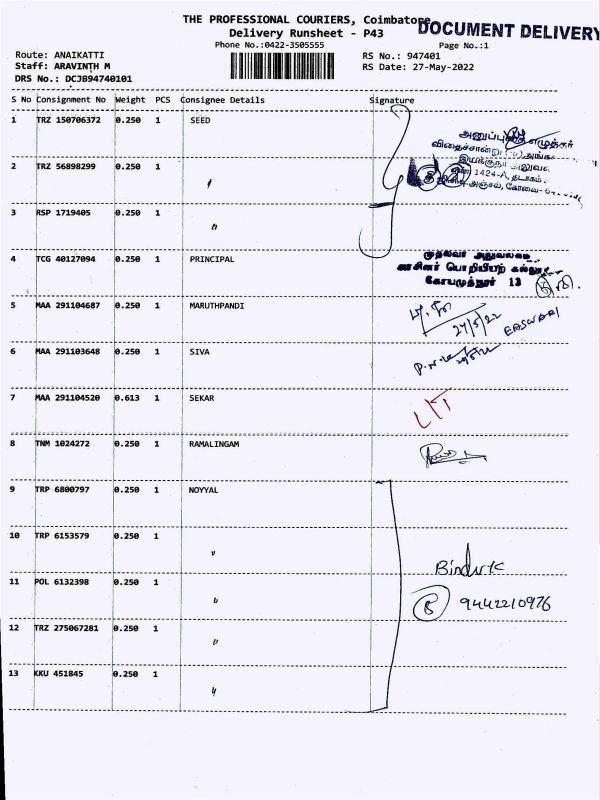 THE PROFESSIONAL COURIERS, Coimbatore
DOCUMENT DELIVERY
Delivery Runsheet - P43
Phone No.:0422-3505555
Page No.:1
Route: ANAIKATTI
RS No.: 947401
Staff: ARAVINTH M
RS Date: 27-May-2022
DRS No.: DCJB94740101
S No Consignment No Weight PCS Consignee Details Signature
1 TRZ 150706372 0.250 1 SEED
அனுப்புகை எழுத்தர்
2 TRZ 56898299 0.250 1 "
1424-A, தடாகம்
அஞ்சல், கோவை-
3 RSP 1719405 0.250 1 "
4 TCG 40127094 0.250 1 PRINCIPAL
முதல்வர் அலுவலகம்
அரசினர் பொறியியற் கல்லூரி
கோயமுத்தூர் 13
5 MAA 291104687 0.250 1 MARUTHPANDI
27/5/22
EASWARI
6 MAA 291103648 0.250 1 SIVA
7 MAA 291104520 0.613 1 SEKAR
LIT
8 TNM 1024272 0.250 1 RAMALINGAM
9 TRP 6800797 0.250 1 NOYYAL
10 TRP 6153579 0.250 1 "
Bindu K
11 POL 6132398 0.250 1 "
9442210976
12 TRZ 275067281 0.250 1 "
13 KKU 451845 0.250 1 "